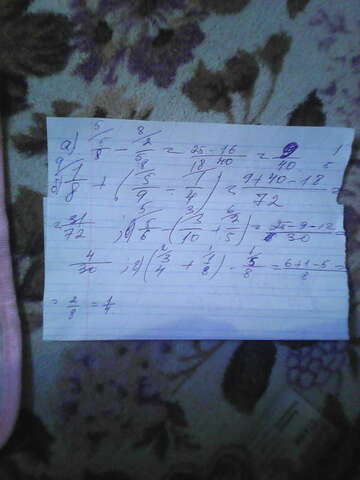 а) 5/8 - 2/5 = 25-16/40 = 9/40
б) 1/8 + (5/9 - 1/4) = 9+40-18/72 =
= 31/72 ; в) 5/6 - (3/10 + 2/5) = 25-9-12/30 =
4/30 ; г) (3/4 + 1/8) - 5/8 = 6+1-5/8 =
= 2/8 = 1/4